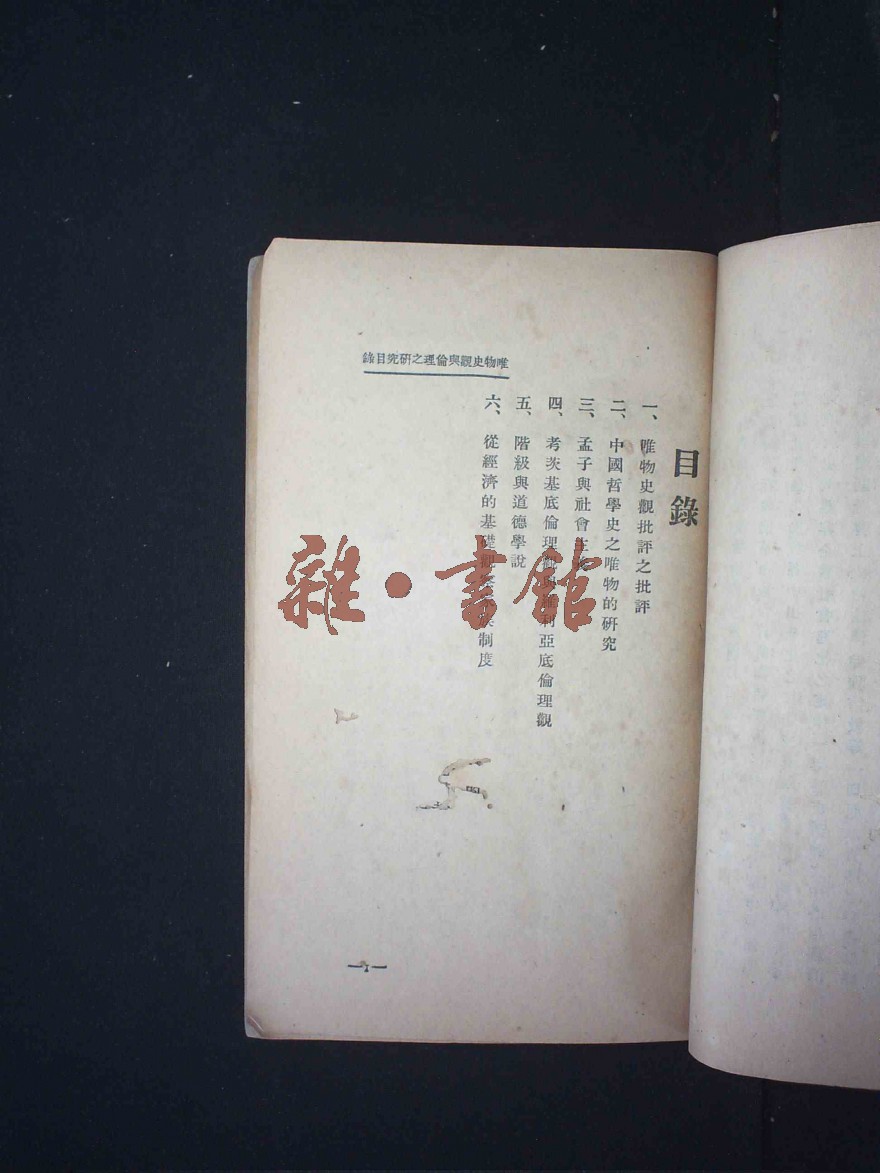 唯物史觀與倫理之研究目錄
目錄
一、唯物史觀批評之批評
二、中國哲學史之唯物的研究
三、孟子與社會主
四、考茨基底倫理觀與利亞底倫理觀
五、階級與道德學說
六、從經濟的基礎觀族制度
雜·書館
—1—